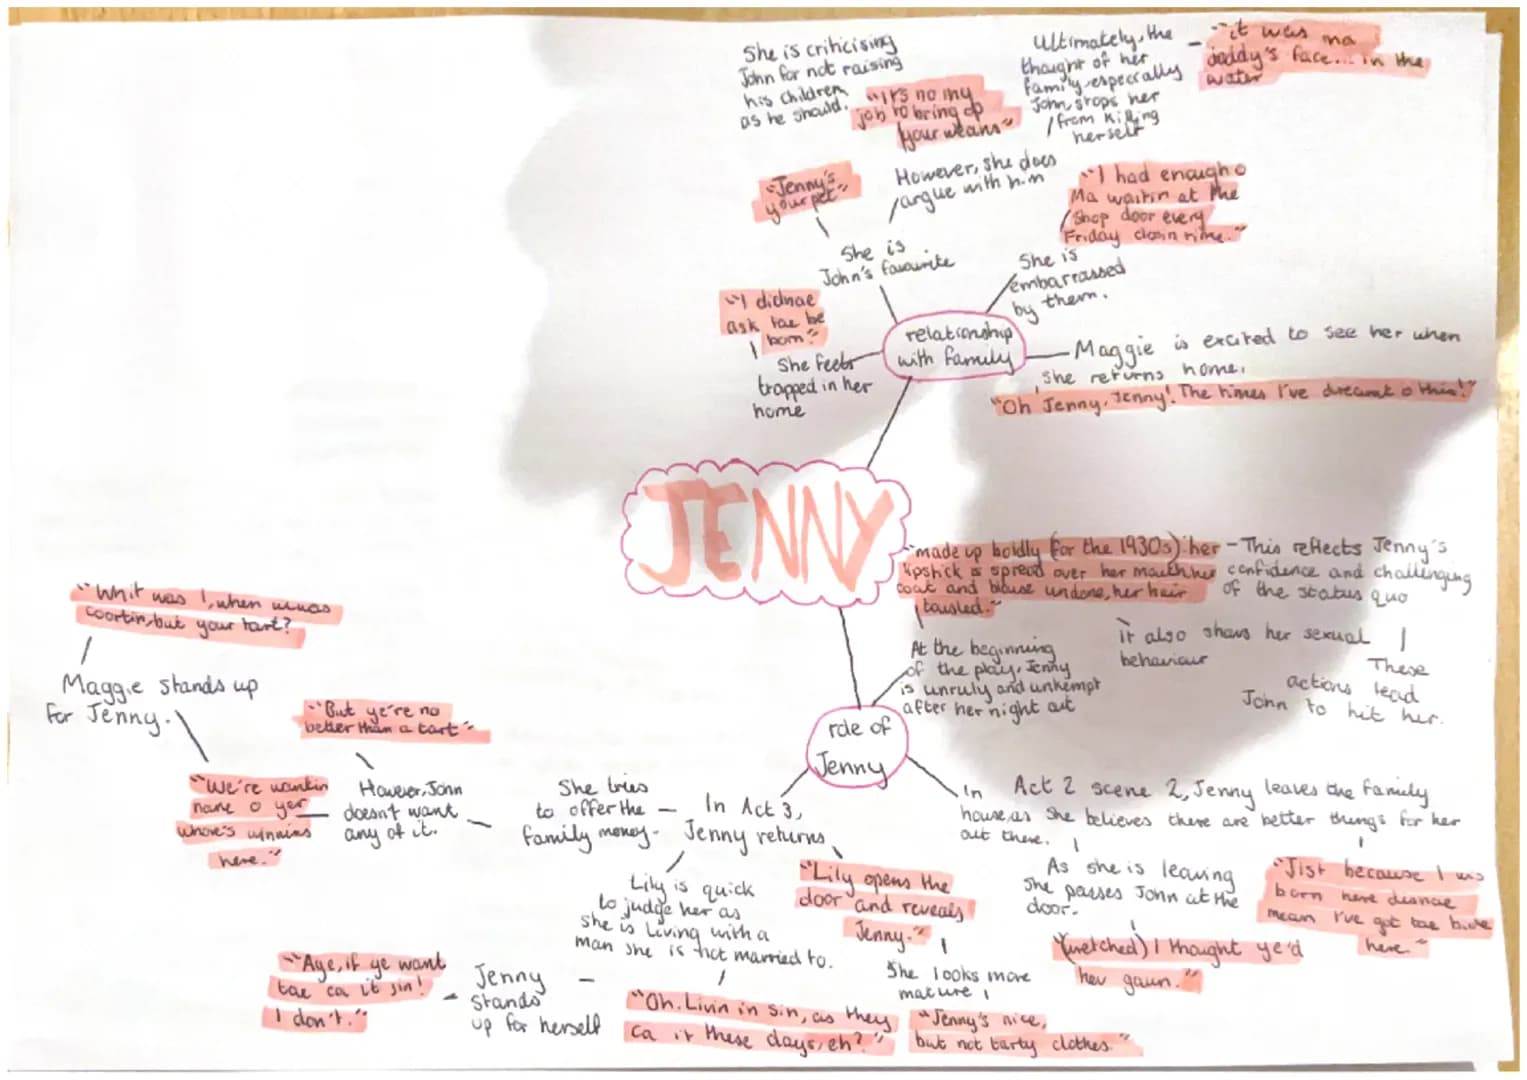 She is criticising
John for not raising
his children
as he should.
"It's no my
job to bring up
your weans"
Ultimately, the
thought of her
family, especially
John, stops her
from killing
herself
"it was ma
daddy's face... in the
water
"Jenny's
your pet"
However, she does
argue with him
"I had enough o
Ma waitin at the
shop door every
Friday closin time."
She is
John's favourite
She is
embarrassed
by them.
"I didnae
ask tae be
born."
She feels
trapped in her
home
relationship
with family
Maggie is excited to see her when
she returns home.
"Oh Jenny, Jenny! The times I've dreamt o this!"
JENNY
"made up boldly (for the 1930s): her
lipstick is spread over her mouth, her
coat and blouse undone, her hair
tousled."
- This reflects Jenny's
confidence and challenging
of the status quo
it also shows her sexual
behaviour
These
actions lead
John to hit her.
At the beginning
of the play, Jenny
is unruly and unkempt
after her night out
role of
Jenny
"Whit was I, when wuwas
coortin, but your tart?
Maggie stands up
for Jenny.
"But ye're no
better than a tart"
"We're wantin
nane o yer
whore's winnins
here."
However, John
doesn't want
any of it.
She tries
to offer the
family money.
In Act 3,
Jenny returns
In Act 2 scene 2, Jenny leaves the family
house, as she believes there are better things for her
out there.
As she is leaving
she passes John at the
door.
(wretched) I thought ye'd
hev gaun."
"Jist because I wis
born here disnae
mean I've got tae bide
here."
Lily is quick
to judge her as
she is living with a
man she is not married to.
"Lily opens the
door and reveals
Jenny."
She looks more
mature
"Jenny's nice,
but not tarty clothes."
"Oh. Livin in sin, as they
ca it these days, eh?"
Jenny
stands
up for herself
"Aye, if ye want
tae ca it sin!
I don't."